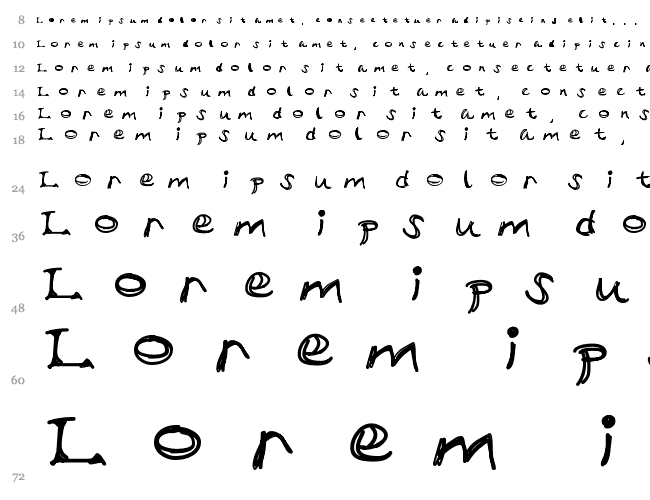 8 Lorem ipsum dolor sit amet, consectetuer adipiscing elit...
10 Lorem ipsum dolor sit amet, consectetuer adipiscin
12 Lorem ipsum dolor sit amet, consectetuer a
14 Lorem ipsum dolor sit amet, consect
16 Lorem ipsum dolor sit amet, cons
18 Lorem ipsum dolor sit amet,
24 Lorem ipsum dolor sit
36 Lorem ipsum do
48 Lorem ipsu
60 Lorem ip
72 Lorem i